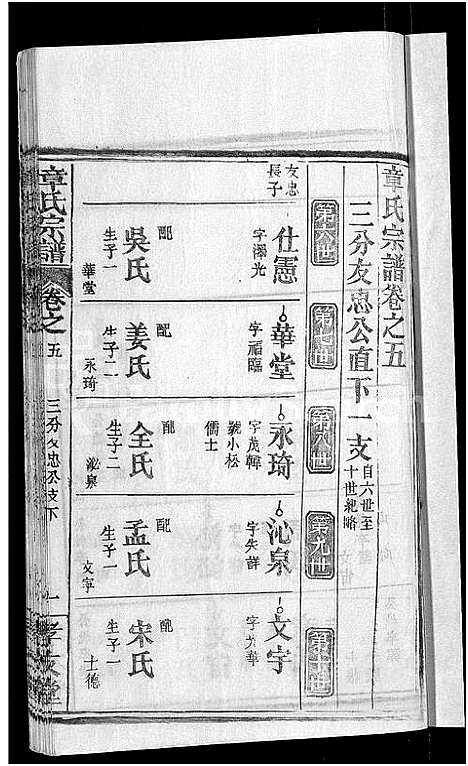 章氏宗譜卷之五
三分友忠公直下一支
自六世至
十世紀略
第六世
第七世
第八世
第九世
第十世
友忠
長子
仕憲
字澤光
配
吳氏
生子一
華堂
華堂
字福臨
配
姜氏
生子二
永琦
永琦
字茂韓
號小松
儒士
配
全氏
生子二
沁泉
沁泉
字失詳
配
孟氏
生子一
文宇
字
配
宋氏
生子一
士德
章氏宗譜
卷之五
三分友忠公支下
一